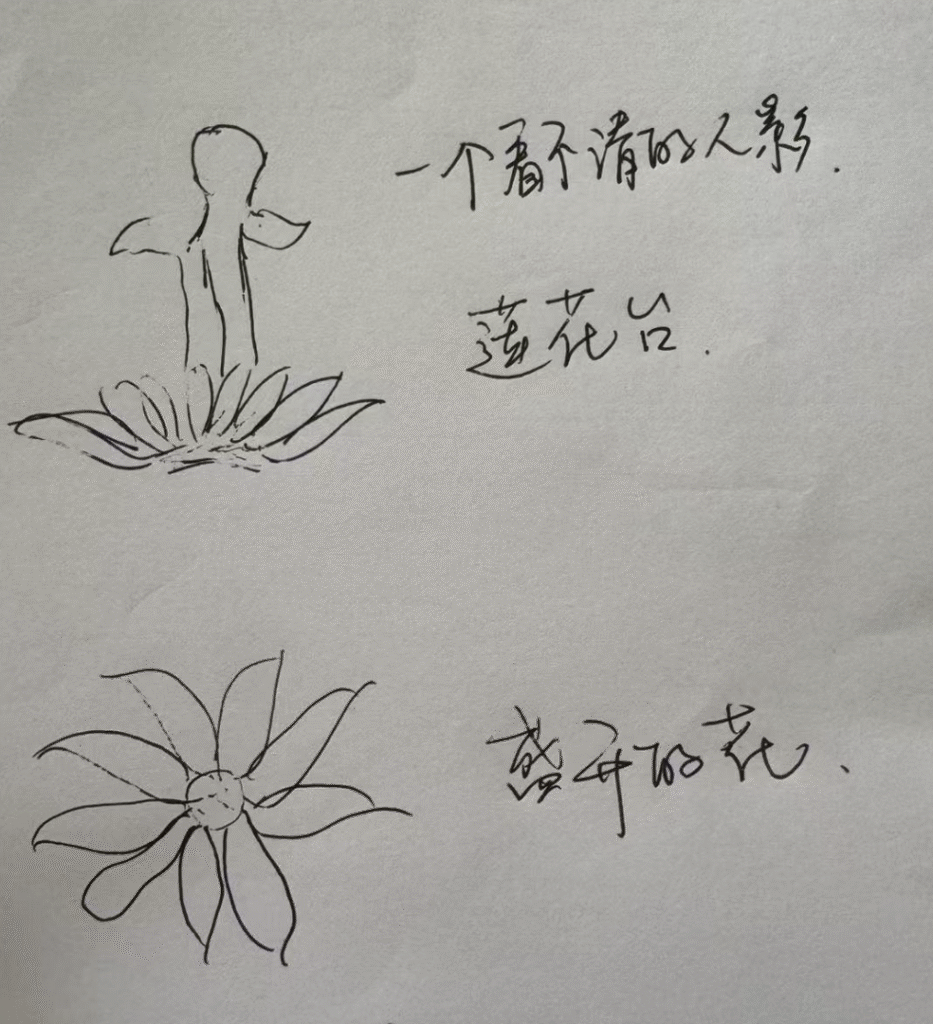 一个看不清的人影.
莲花台.
盛开的花.